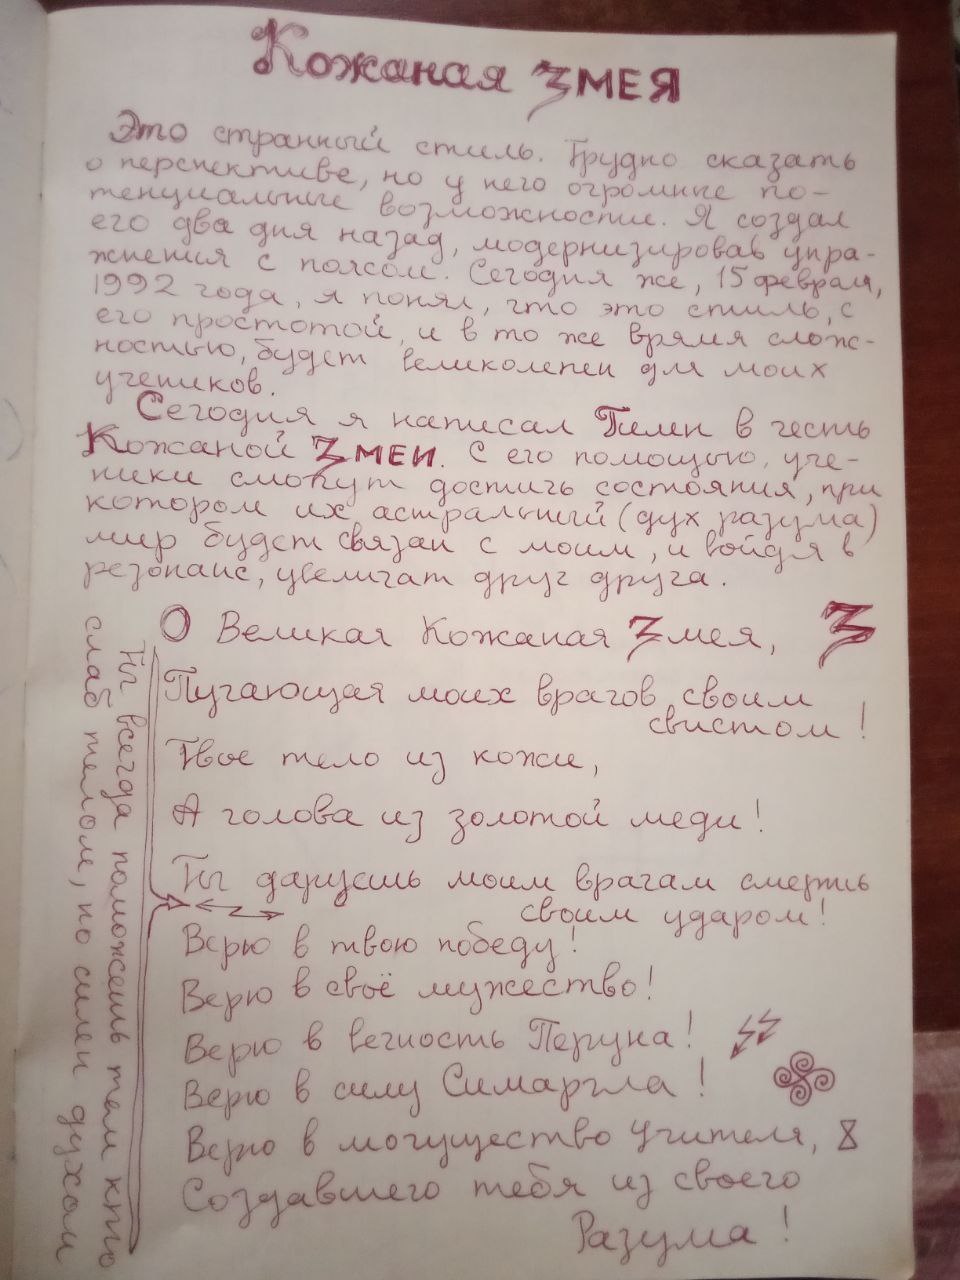 Кожаная Змея
Это странный стиль. Трудно сказать
о перспективе, но у него огромные по-
тенциальные возможности. Я создал
его два дня назад, модернизировав упра-
жнения с поясом. Сегодня же, 15 февраля,
1992 года, я понял, что это стиль, с
его простотой, и в то же время слож-
ностью, будет великолепен для моих
учеников.
Сегодня я написал Гимн в честь
Кожаной Змеи. С его помощью, уче-
ники смогут достичь состояния, при
котором их астральный (дух разума)
мир будет связан с моим, и войдя в
резонанс, увеличат друг друга.
О Великая Кожаная Змея, З
Пугающая моих врагов своим
свистом!
Твое тело из кожи,
А голова из золотой меди!
Ты даруешь моим врагам смерть
своим ударом!
Ты всегда поможешь тем кто
слаб телом, но силен духом
Верю в твою победу!
Верю в своё мужество!
Верю в вечность Перуна!
Верю в силу Симаргла!
Верю в могущество Учителя,
Создавшего тебя из своего
Разума!